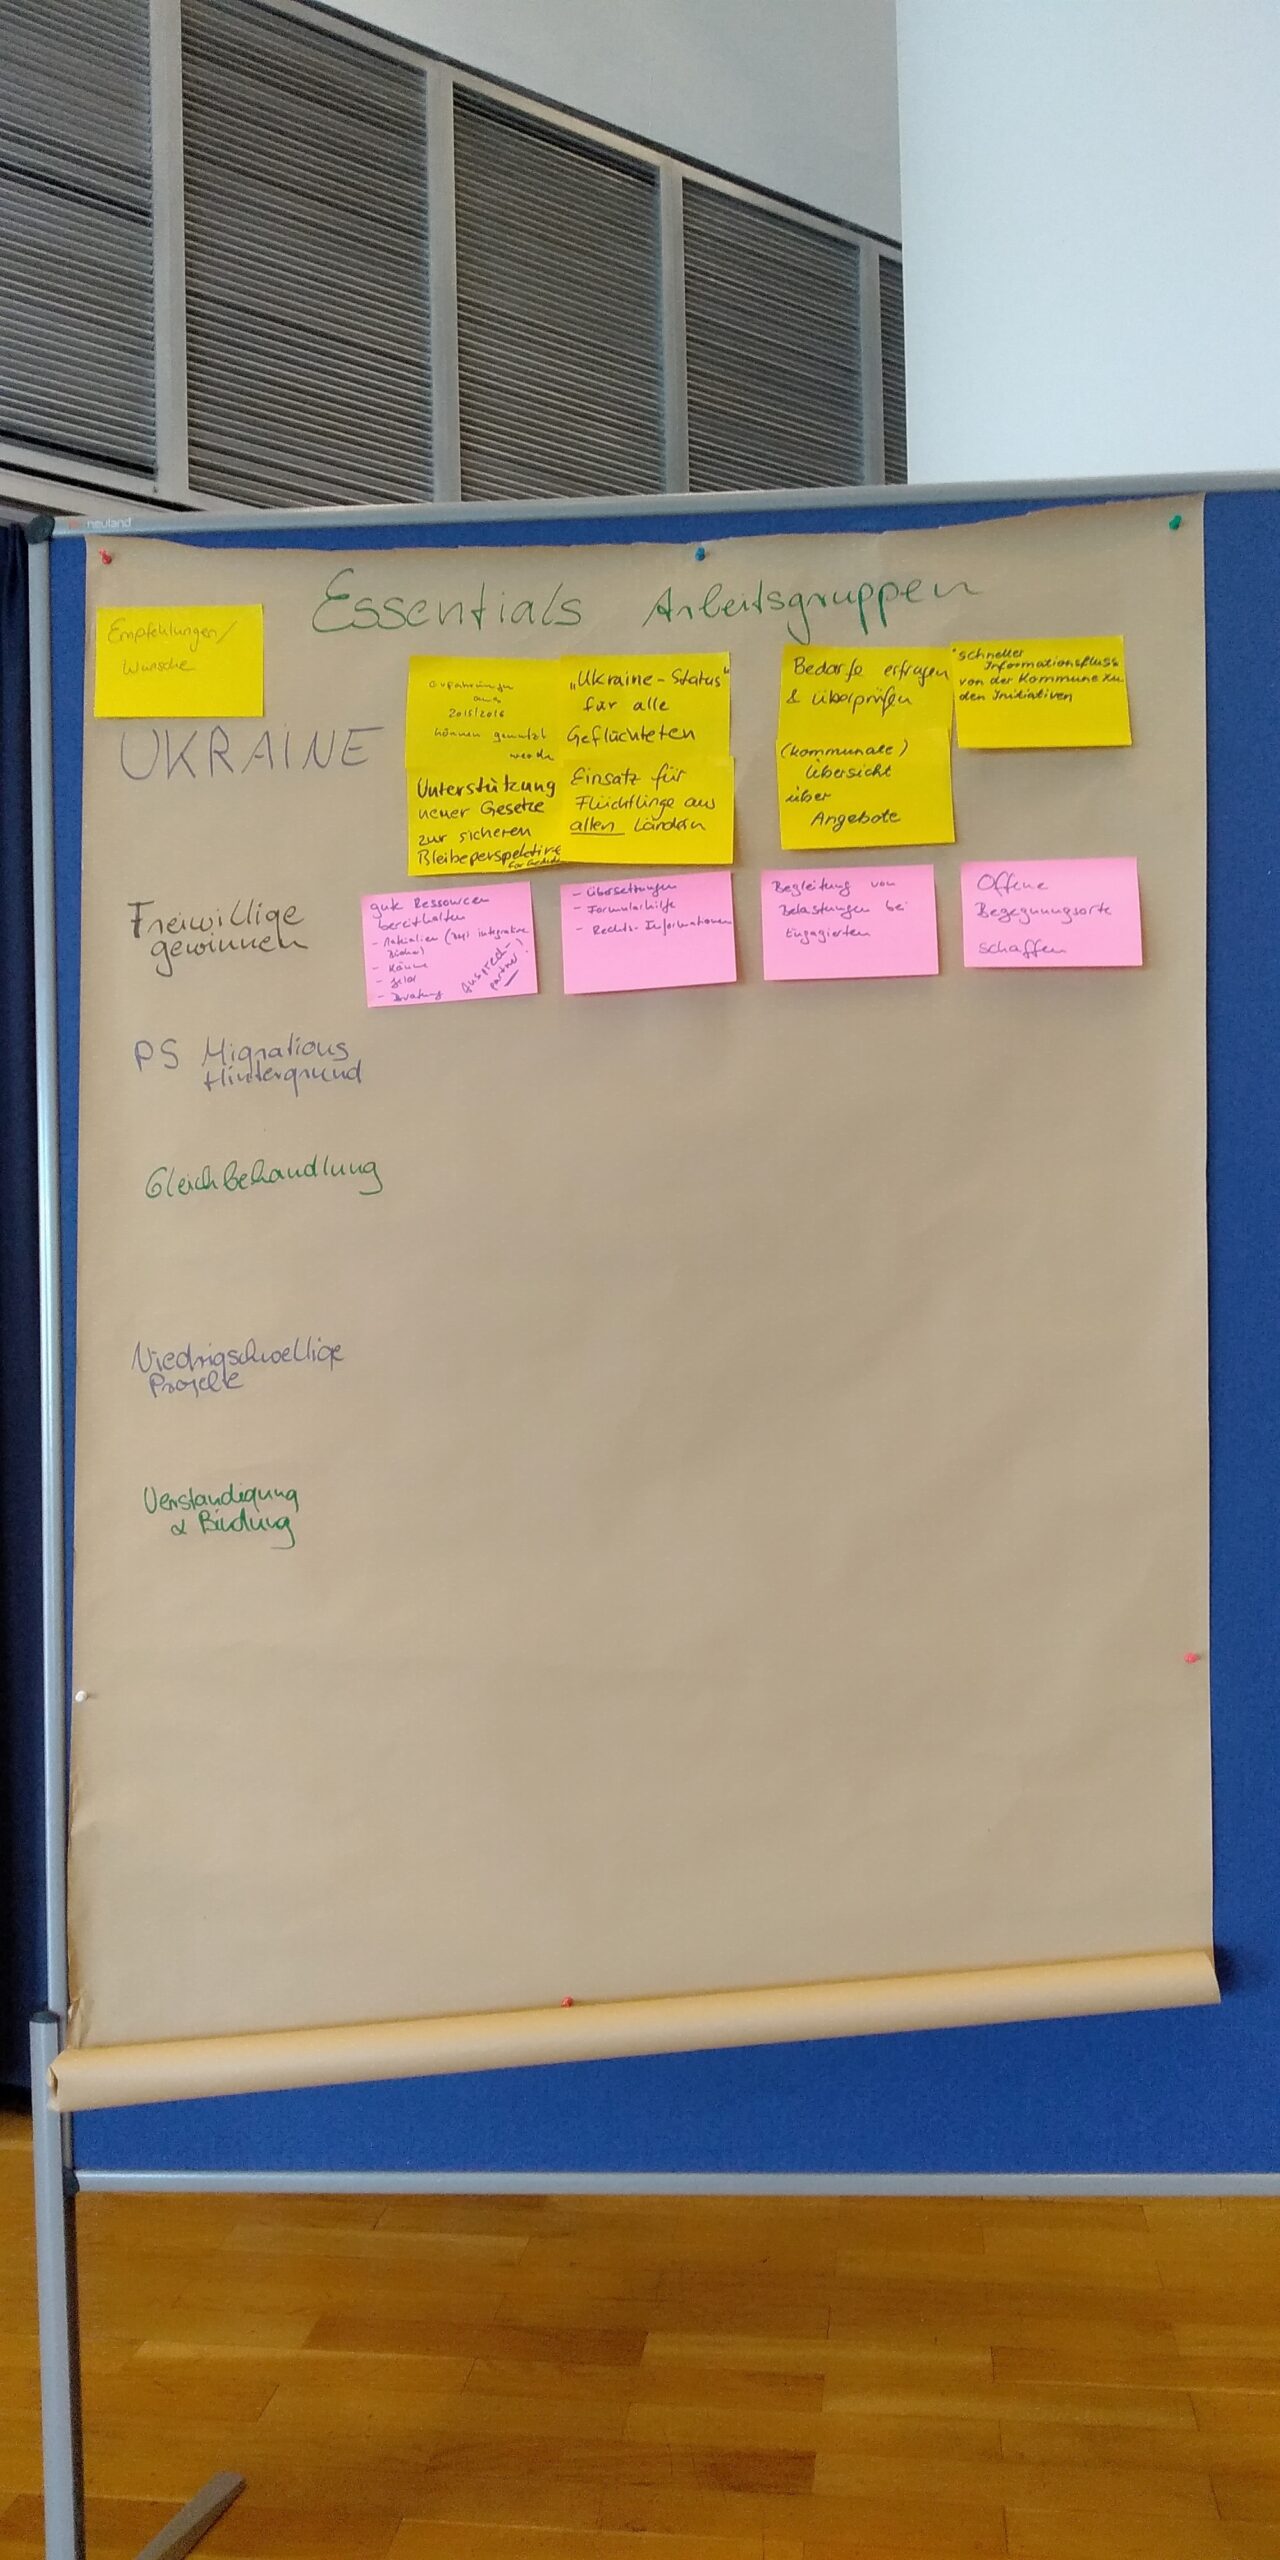 neuland
Essentials Arbeitsgruppen
Empfehlungen/
Wünsche
UKRAINE
Erfahrungen
aus
2015/2016
können genutzt
werden
Unterstützung
neuer Gesetze
zur sicheren
Bleibeperspektive
„Ukraine-Status"
für alle
Geflüchteten
Einsatz für
Flüchtlinge aus
allen Ländern
Bedarfe erfragen
& überprüfen
(kommunale)
Übersicht
über
Angebote
schneller
Informationsfluss
von der Kommune zu
den Initiativen
Freiwillige
gewinnen
gute Ressourcen
bereithalten
- Materialien (
- Räume
- Geld
- Beratung
Ansprech-
partner
- Übersetzungen
- Formularhilfe
- Rechts-Informationen
Begleitung von
Belastungen bei
Engagierten
Offene
Begegnungsorte
schaffen
PS Migrations
Hintergrund
Gleichbehandlung
Niedrigschwellige
Projekte
Verständigung
& Bindung